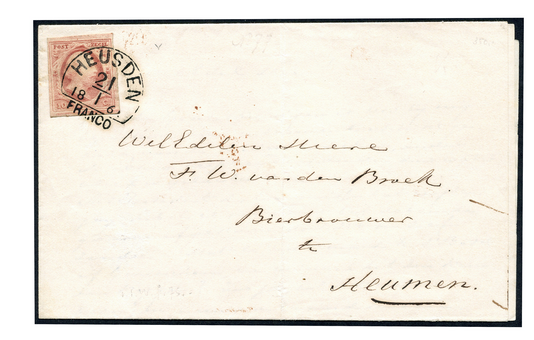 POST
HEUSDEN
21
1
18 6
FRANCO
WelEdelen Heere
F. W. van den Broek.
Bierbrouwer
te
Heumen.